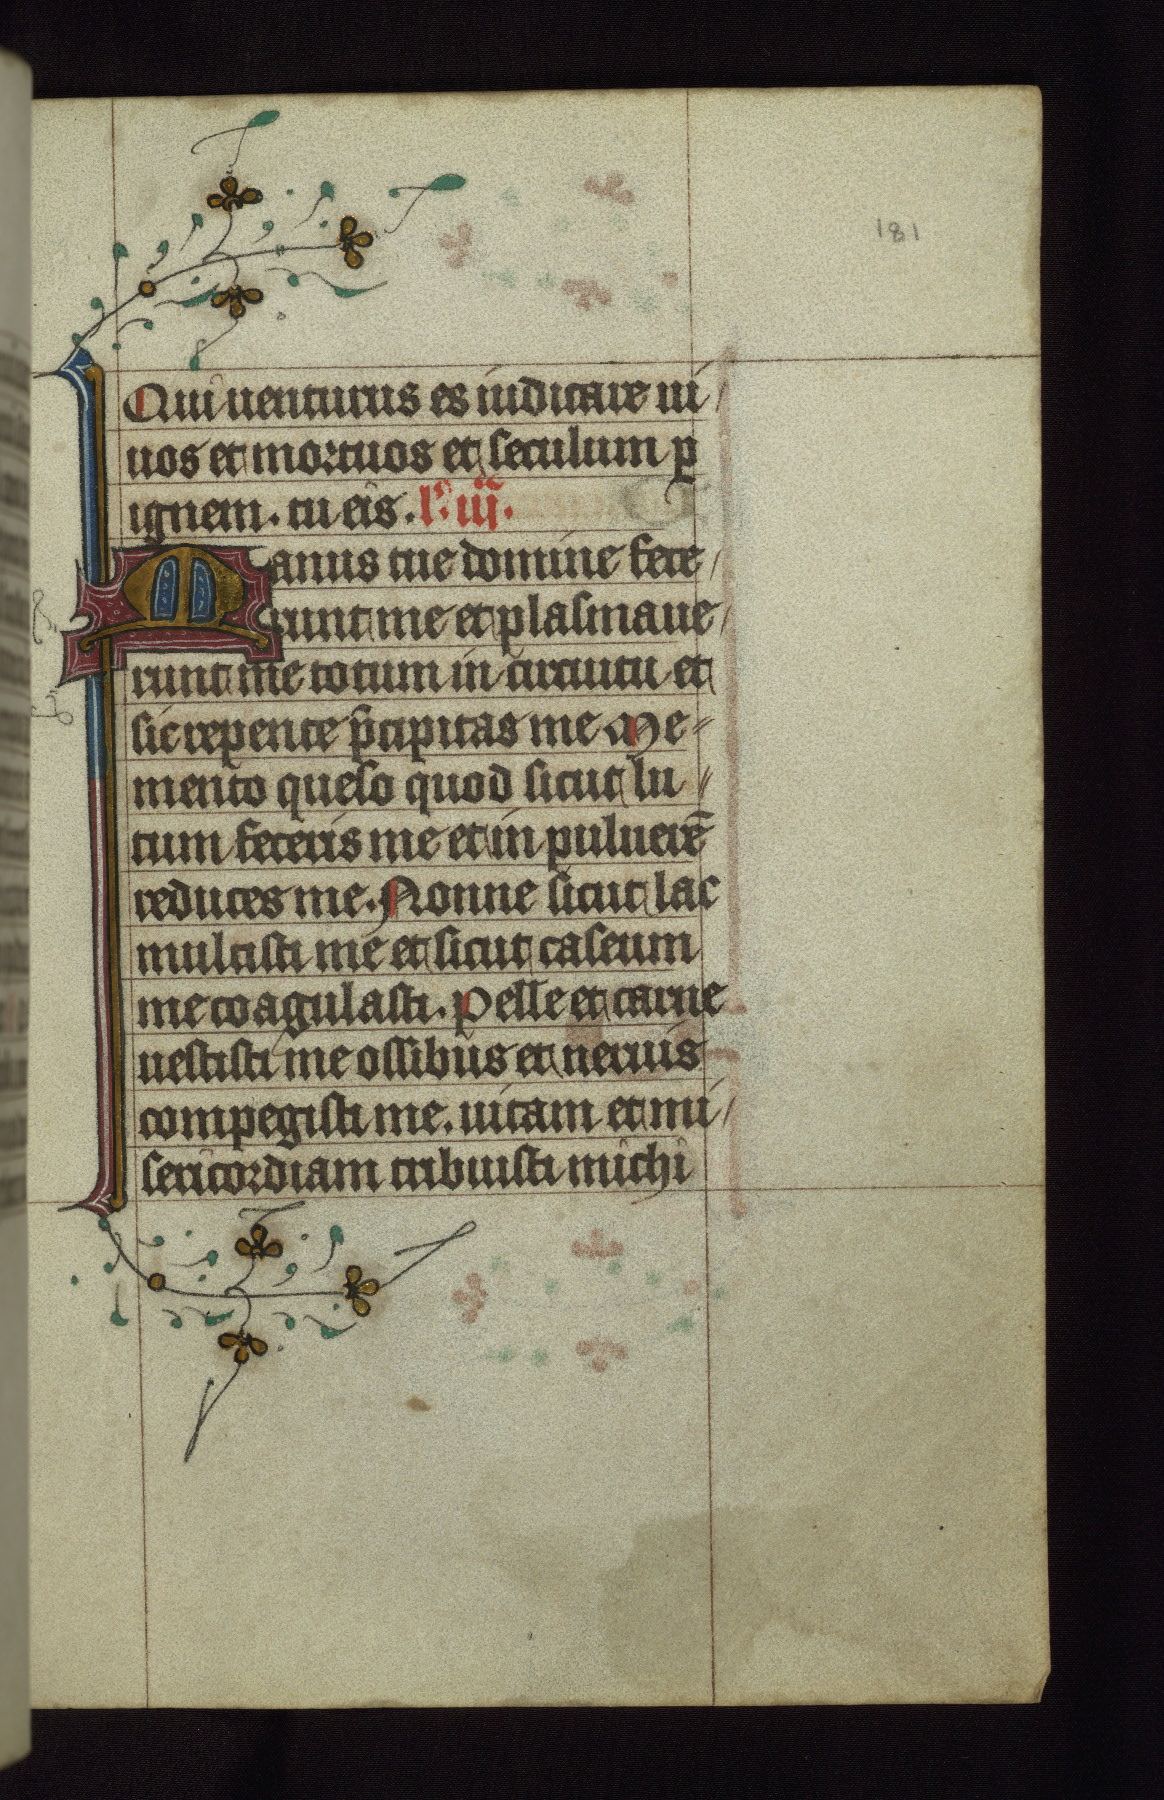 181
Qui uenturus es iudicare ui
uos et mortuos et seculum p̱
ignem. tu eis. lc̄. iij.
Manus tue domine fece
runt me et plasmaue
runt me totum in circuitu et
sic repente p̄cipitas me Me
mento queso quod sicut lu
tum feceris me et in puluerē
reduces me. Nonne sicut lac
mulcisti me et sicut caseum
me coagulasti. Pelle et carne
uestisti me ossibus et neruis
compegisti me. uitam et mi
sericordiam tribuisti michi